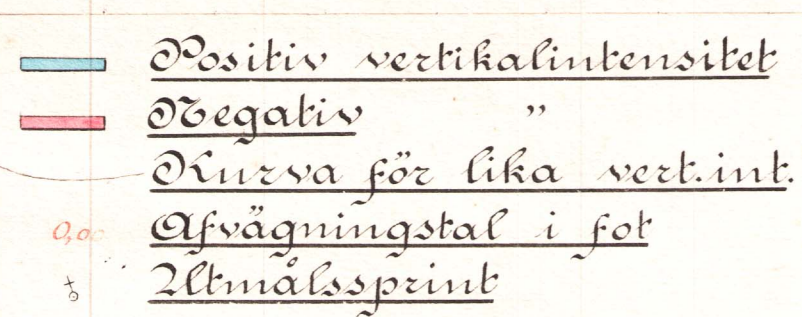 Positiv vertikalintensitet
Negativ "
Kurva för lika vert.int.
0,00 Afvägningstal i fot
Utmålssprint